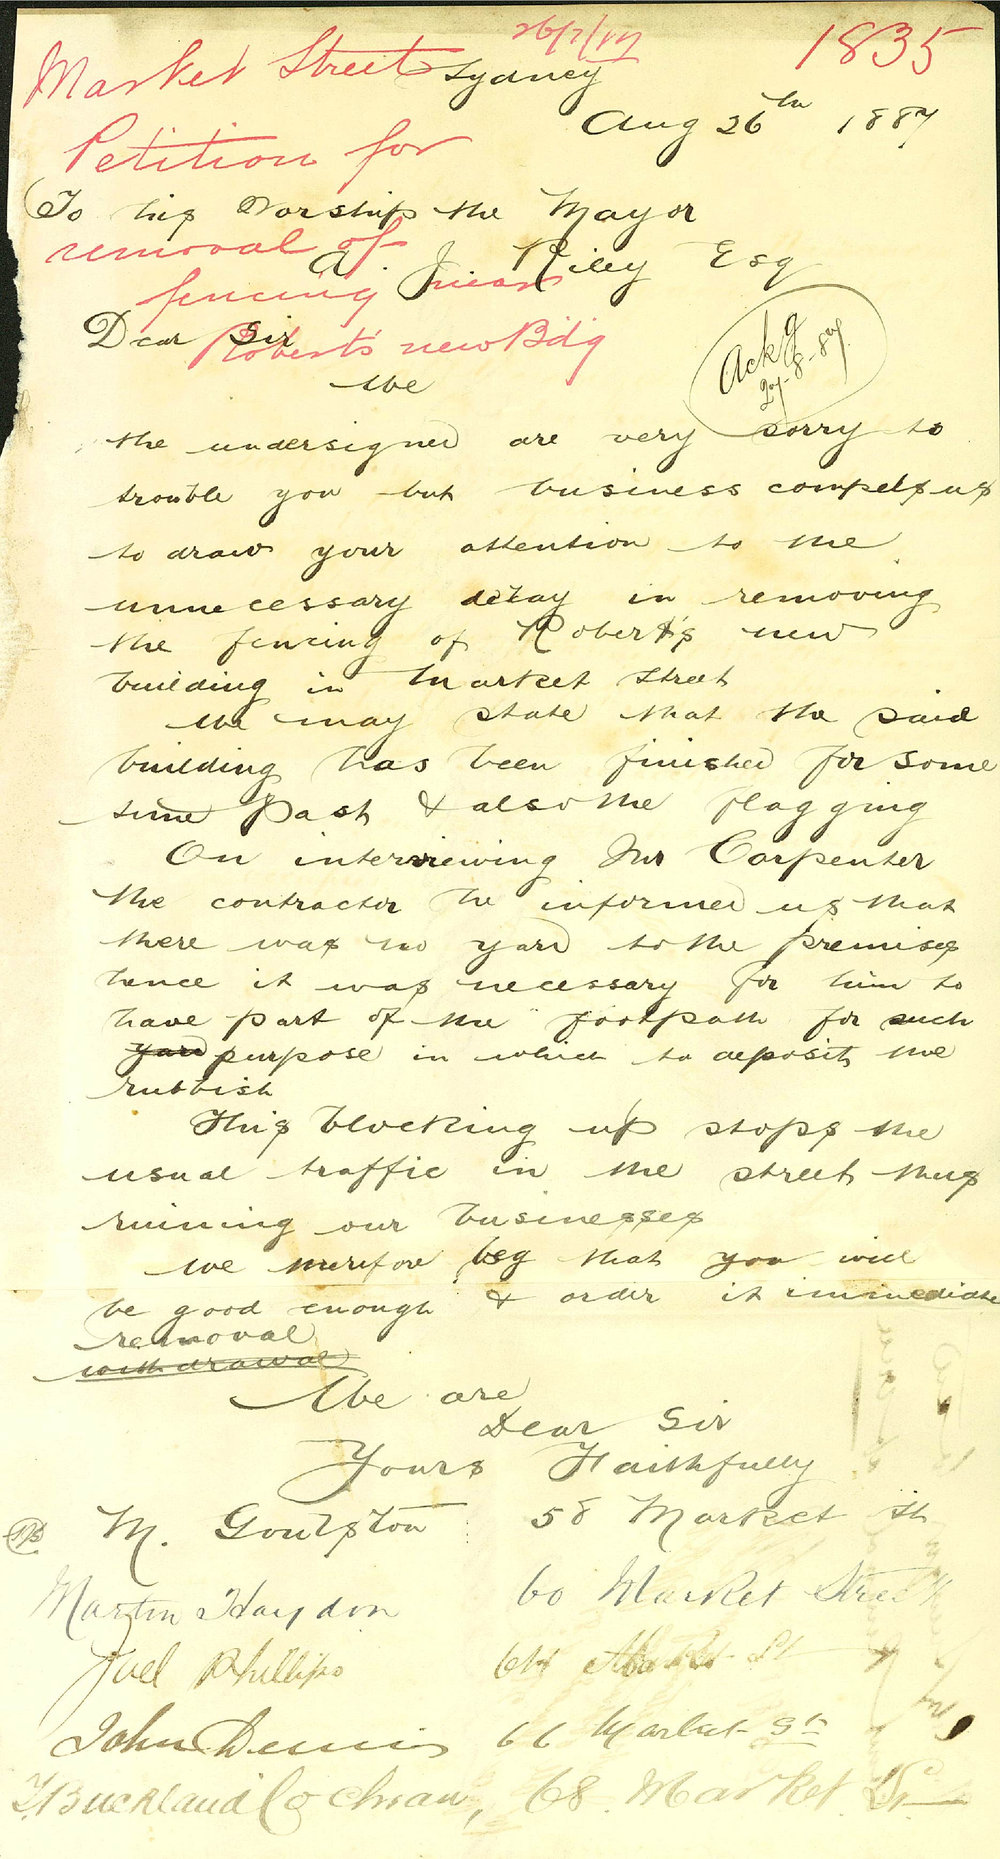 26/7/17
1835
Market Street
Petition for
removal of
fencing near
Robert's new Bdg
Sydney
Aug 26th 1887
To his Worship the Mayor
A. J. Riley Esq
Dear Sir
Ackg
27-8-87
We
the undersigned are very sorry to
trouble you but business compels us
to draw your attention to the
unnecessary delay in removing
the fencing of Robert's new
building in Market Street
We may state that the said
building has been finished for some
time past & also the flagging
On interviewing Mr Carpenter
the contractor he informed us that
there was no yard to the premises
hence it was necessary for him to
have part of the footpath for such
yard purpose in which to deposit the
rubbish
This blocking up stops the
usual traffic in the street thus
ruining our businesses
We therefore beg that you will
be good enough & order it immediate
removal
withdrawal
We are
Dear Sir
Yours Faithfully
M. Goulston 58 Market St
Martin Haydon 60 Market Street
Joel Phillips 64 Market St
John Dennis 66 Market St
Buckland Cochran, 68 Market St